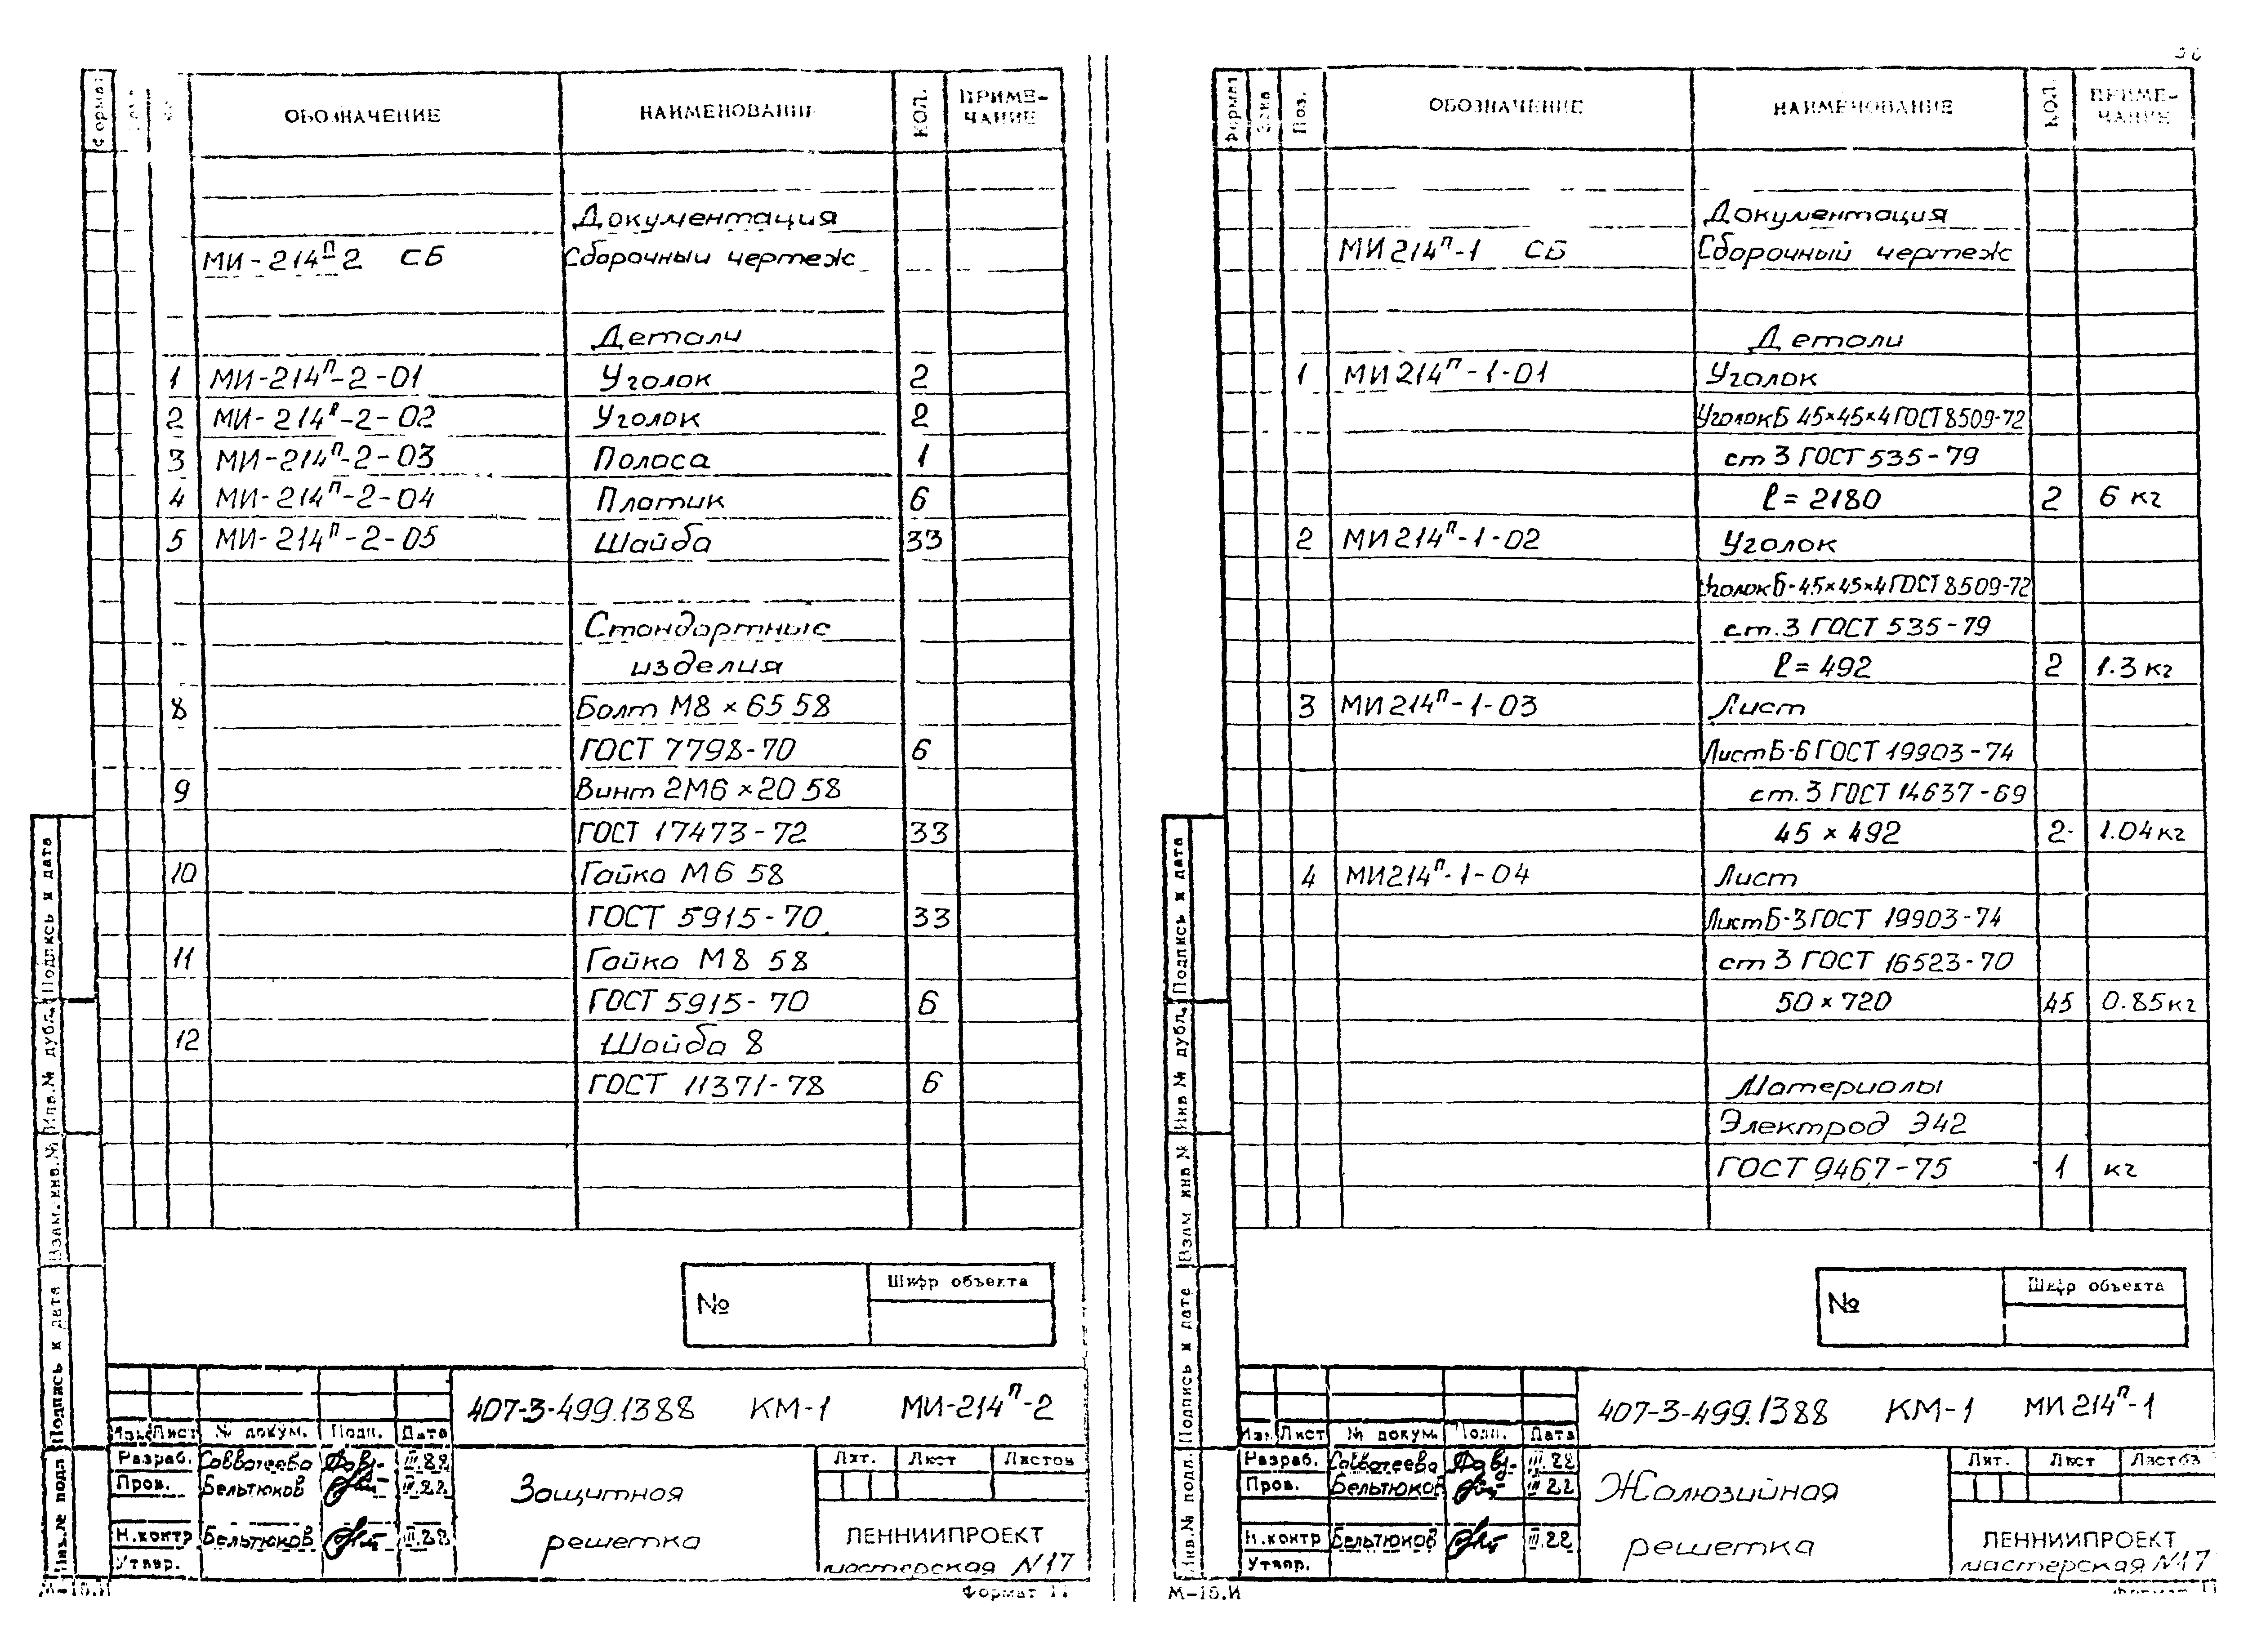 Формат
ОБОЗНАЧЕНИЕ НАИМЕНОВАНИЕ КОЛ. ПРИМЕ-
ЧАНИЕ
Документация
МИ-214П-2 СБ Сборочный чертеж
Детали
1 МИ-214П-2-01 Уголок 2
2 МИ-214П-2-02 Уголок 2
3 МИ-214П-2-03 Полоса 1
4 МИ-214П-2-04 Платик 6
5 МИ-214П-2-05 Шайба 33
Стандартные
изделия
8 Болт М8 × 65 58
ГОСТ 7798-70 6
9 Винт 2М6 × 20 58
ГОСТ 17473-72 33
10 Гайка М6 58
ГОСТ 5915-70 33
11 Гайка М8 58
ГОСТ 5915-70 6
12 Шайба 8
ГОСТ 11371-78 6
Подпись и дата
Инв.№ дубл.
Взам.инв.№
Подпись и дата
Инв.№ подл
№ Шифр объекта
407-3-499.1388 КМ-1 МИ-214П-2
Изм Лист № докум. Подп. Дата
Разраб. Савватеева III.88
Пров. Бельтюков III.88
Н.контр Бельтюков III.88
Утвер.
Защитная
решетка
Лит. Лист Листов
ЛЕННИИПРОЕКТ
мастерская N17
М-15.И
Формат 11
Формат Зона Поз. ОБОЗНАЧЕНИЕ НАИМЕНОВАНИЕ КОЛ. ПРИМЕ-
ЧАНИЕ
Документация
МИ 214П-1 СБ Сборочный чертеж
Детали
1 МИ 214П-1-01 Уголок
Уголок Б 45×45×4 ГОСТ 8509-72
ст 3 ГОСТ 535-79
ℓ= 2180 2 6 кг
2 МИ 214П-1-02 Уголок
Уголок Б-45×45×4 ГОСТ 8509-72
ст.3 ГОСТ 535-79
ℓ= 492 2 1.3 кг
3 МИ 214П-1-03 Лист
Лист Б-6 ГОСТ 19903-74
ст.3 ГОСТ 14637-69
45 × 492 2 1.04 кг
4 МИ 214П-1-04 Лист
Лист Б-3 ГОСТ 19903-74
ст 3 ГОСТ 16523-70
50 × 720 45 0.85 кг
Материалы
Электрод Э42
ГОСТ 9467-75 1 кг
Подпись и дата
Инв № дубл.
Взам инв №
Подпись и дата
Инв.№ подл.
№ Шифр объекта
407-3-499.1388 КМ-1 МИ 214П-1
Изм Лист № докум. Подп. Дата
Разраб. Савватеева III.88
Пров. Бельтюков III.88
Н.контр Бельтюков III.88
Утвер.
Жалюзийная
решетка
Лит. Лист Листов
ЛЕННИИПРОЕКТ
мастерская N17
М-15.И
Формат 11